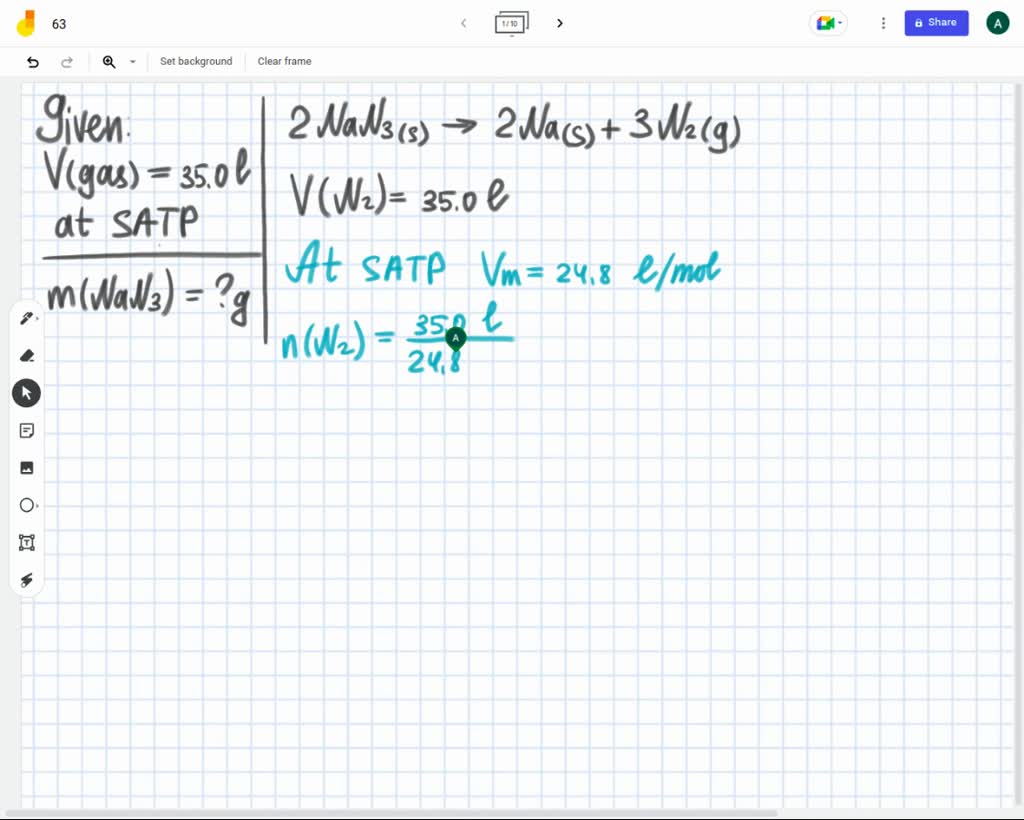 63
1/10
Share
A
Set background
Clear frame
Given:
V(gas) = 35.0 l
at SATP
m(NaN3) = ?g
2 NaN3(s) → 2Na(s) + 3N2(g)
V(N2) = 35.0 l
At SATP Vm = 24,8 l/mol
n(N2) = 35.0 l
24,8
A